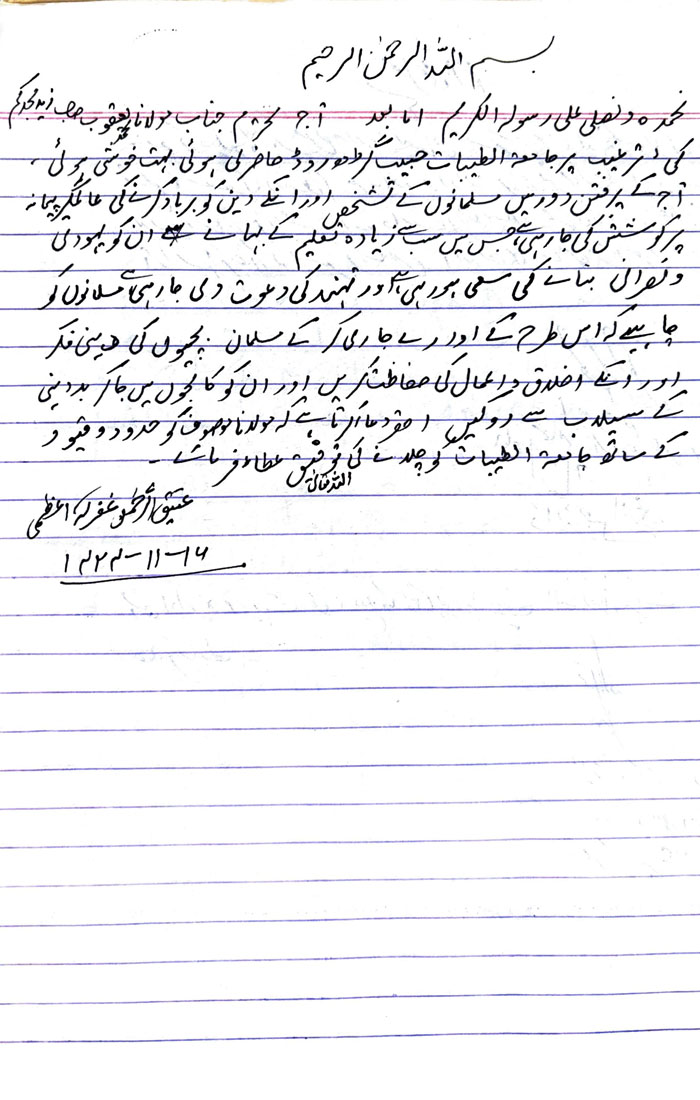 بسم اللہ الرحمٰن الرحیم
نحمدہ و نصلی علی رسولہ الکریم اما بعد آج محترم جناب مولانا محمد یعقوب صاحب زید مجدکم
کی ترغیب پر جامعۃ الطیبات حبیب گڑھ روڈ حاضری ہوئی بہت خوشی ہوئی،
آج کے پرفتن دور میں مسلمانوں کے تشخص اور انکے دین کو برباد کرنے کی عالمگیر پیمانہ
پر کوشش کی جارہی ہے، جس میں سب سے زیادہ تعلیم کے بہانے سے ان کو یہودی
و نصرانی بنانے کی سعی ہورہی ہے اور تہنید کی دعوت دی جارہی ہے مسلمانوں کو
چاہیے کہ اس طرح کے ادارے جاری کر کے مسلمان بچیوں کی دینی فکر
اور انکے اخلاق و اعمال کی حفاظت کریں اور ان کو کالجوں میں جاکر بددینی
کے سیلاب سے روکیں احقر دعا کرتا ہے کہ مولانا موصوف کو حدود و قیود
کے ساتھ جامعۃ الطیبات کو چلانے کی اللہ تعالیٰ توفیق عطاء فرمائے۔
عتیق الرحمٰن غفرلہ اعظمی
۱۶-۱۱-۱۴۲۴